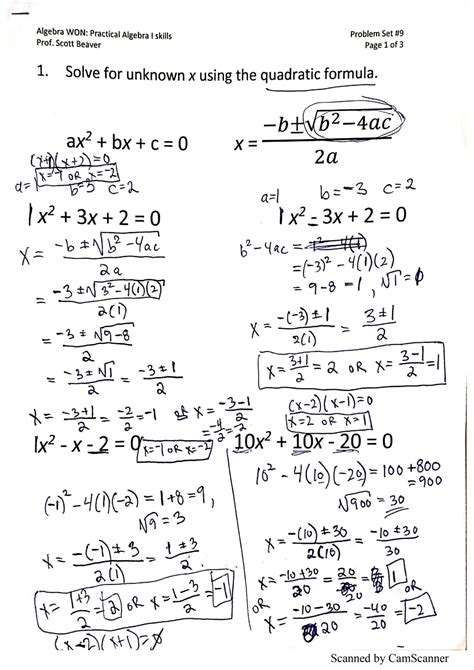 Algebra WON: Practical Algebra I skills
Prof. Scott Beaver
Problem Set #9
Page 1 of 3
1. Solve for unknown x using the quadratic formula.
ax² + bx + c = 0
x = (-b±√(b²-4ac))/(2a)
(x+1)(x+2)=0
x=-1 OR x=-2
a=1 b=3 c=2
1x² + 3x + 2 = 0
x = (-b ± √(b²-4ac))/(2a)
= (-3 ± √(3²-4(1)(2)))/(2(1))
= (-3 ± √(9-8))/2
= (-3 ± √1)/2 = (-3 ± 1)/2
x = (-3+1)/2 = -2/2 = -1 or x = (-3-1)/2
= -4/2 = -2
x=-1 OR x=-2
a=1 b=-3 c=2
1x² - 3x + 2 = 0
b²-4ac =
=(-3)²-4(1)(2)
= 9-8 = 1, √1 = 1
x = (-(-3) ± 1)/(2(1)) = (3±1)/2
x = (3+1)/2 = 2 OR x = (3-1)/2 = 1
(x-2)(x-1)=0
x=2 OR x=1
1x² - x - 2 = 0
(-1)²-4(1)(-2) = 1+8 = 9,
√9 = 3
x = (-(-1) ± 3)/(2(1)) = (1±3)/2
x = (1+3)/2 = 2 OR x = (1-3)/2 = -1
(x-2)(x+1)=0
10x² + 10x - 20 = 0
10²-4(10)(-20) = 100+800
= 900
√900 = 30
x = (-(10) ± 30)/(2(10)) = (-10±30)/20
x = (-10+30)/20 = 20/20 = 1
OR
x = (-10-30)/20 = -40/20 = -2
OR
Scanned by CamScanner